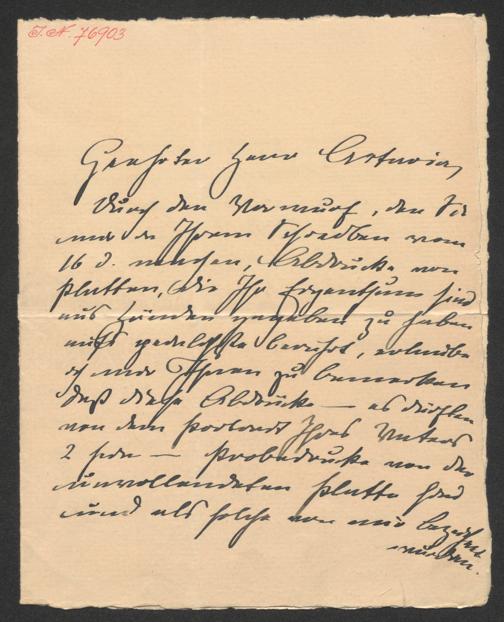 I.N. 76903
Geehrter Herr Artaria,
Durch den Vorwurf, den Sie
mir in Ihrem Schreiben vom
16 d. machen, Abdrücke von
Platten, die Ihr Eigenthum sind
aus Händen gegeben zu haben
aufs peinlichste berührt, erlaube
ich mir Ihnen zu bemerken
daß diese Abdrücke — es dürften
von dem Portrait Ihres Vaters
2 sein — Probedrucke von der
unvollendeten Platte sind
und als solche von mir bezeichnet
wurden.